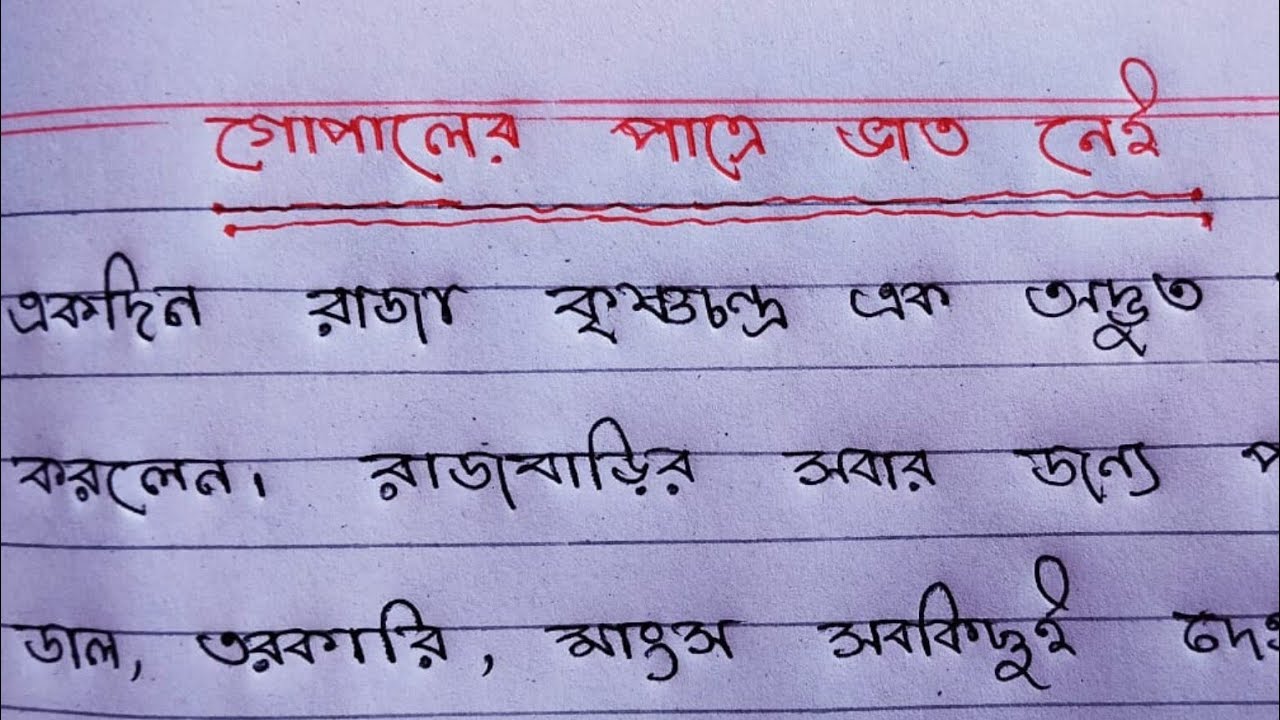 গোপালের পাত্রে ভাত নেই
একদিন রাজা কৃষ্ণচন্দ্র এক অদ্ভুত
করলেন। রাজবাড়ির সবার জন্যে
ডাল, তরকারি, মাংস সবকিছুই